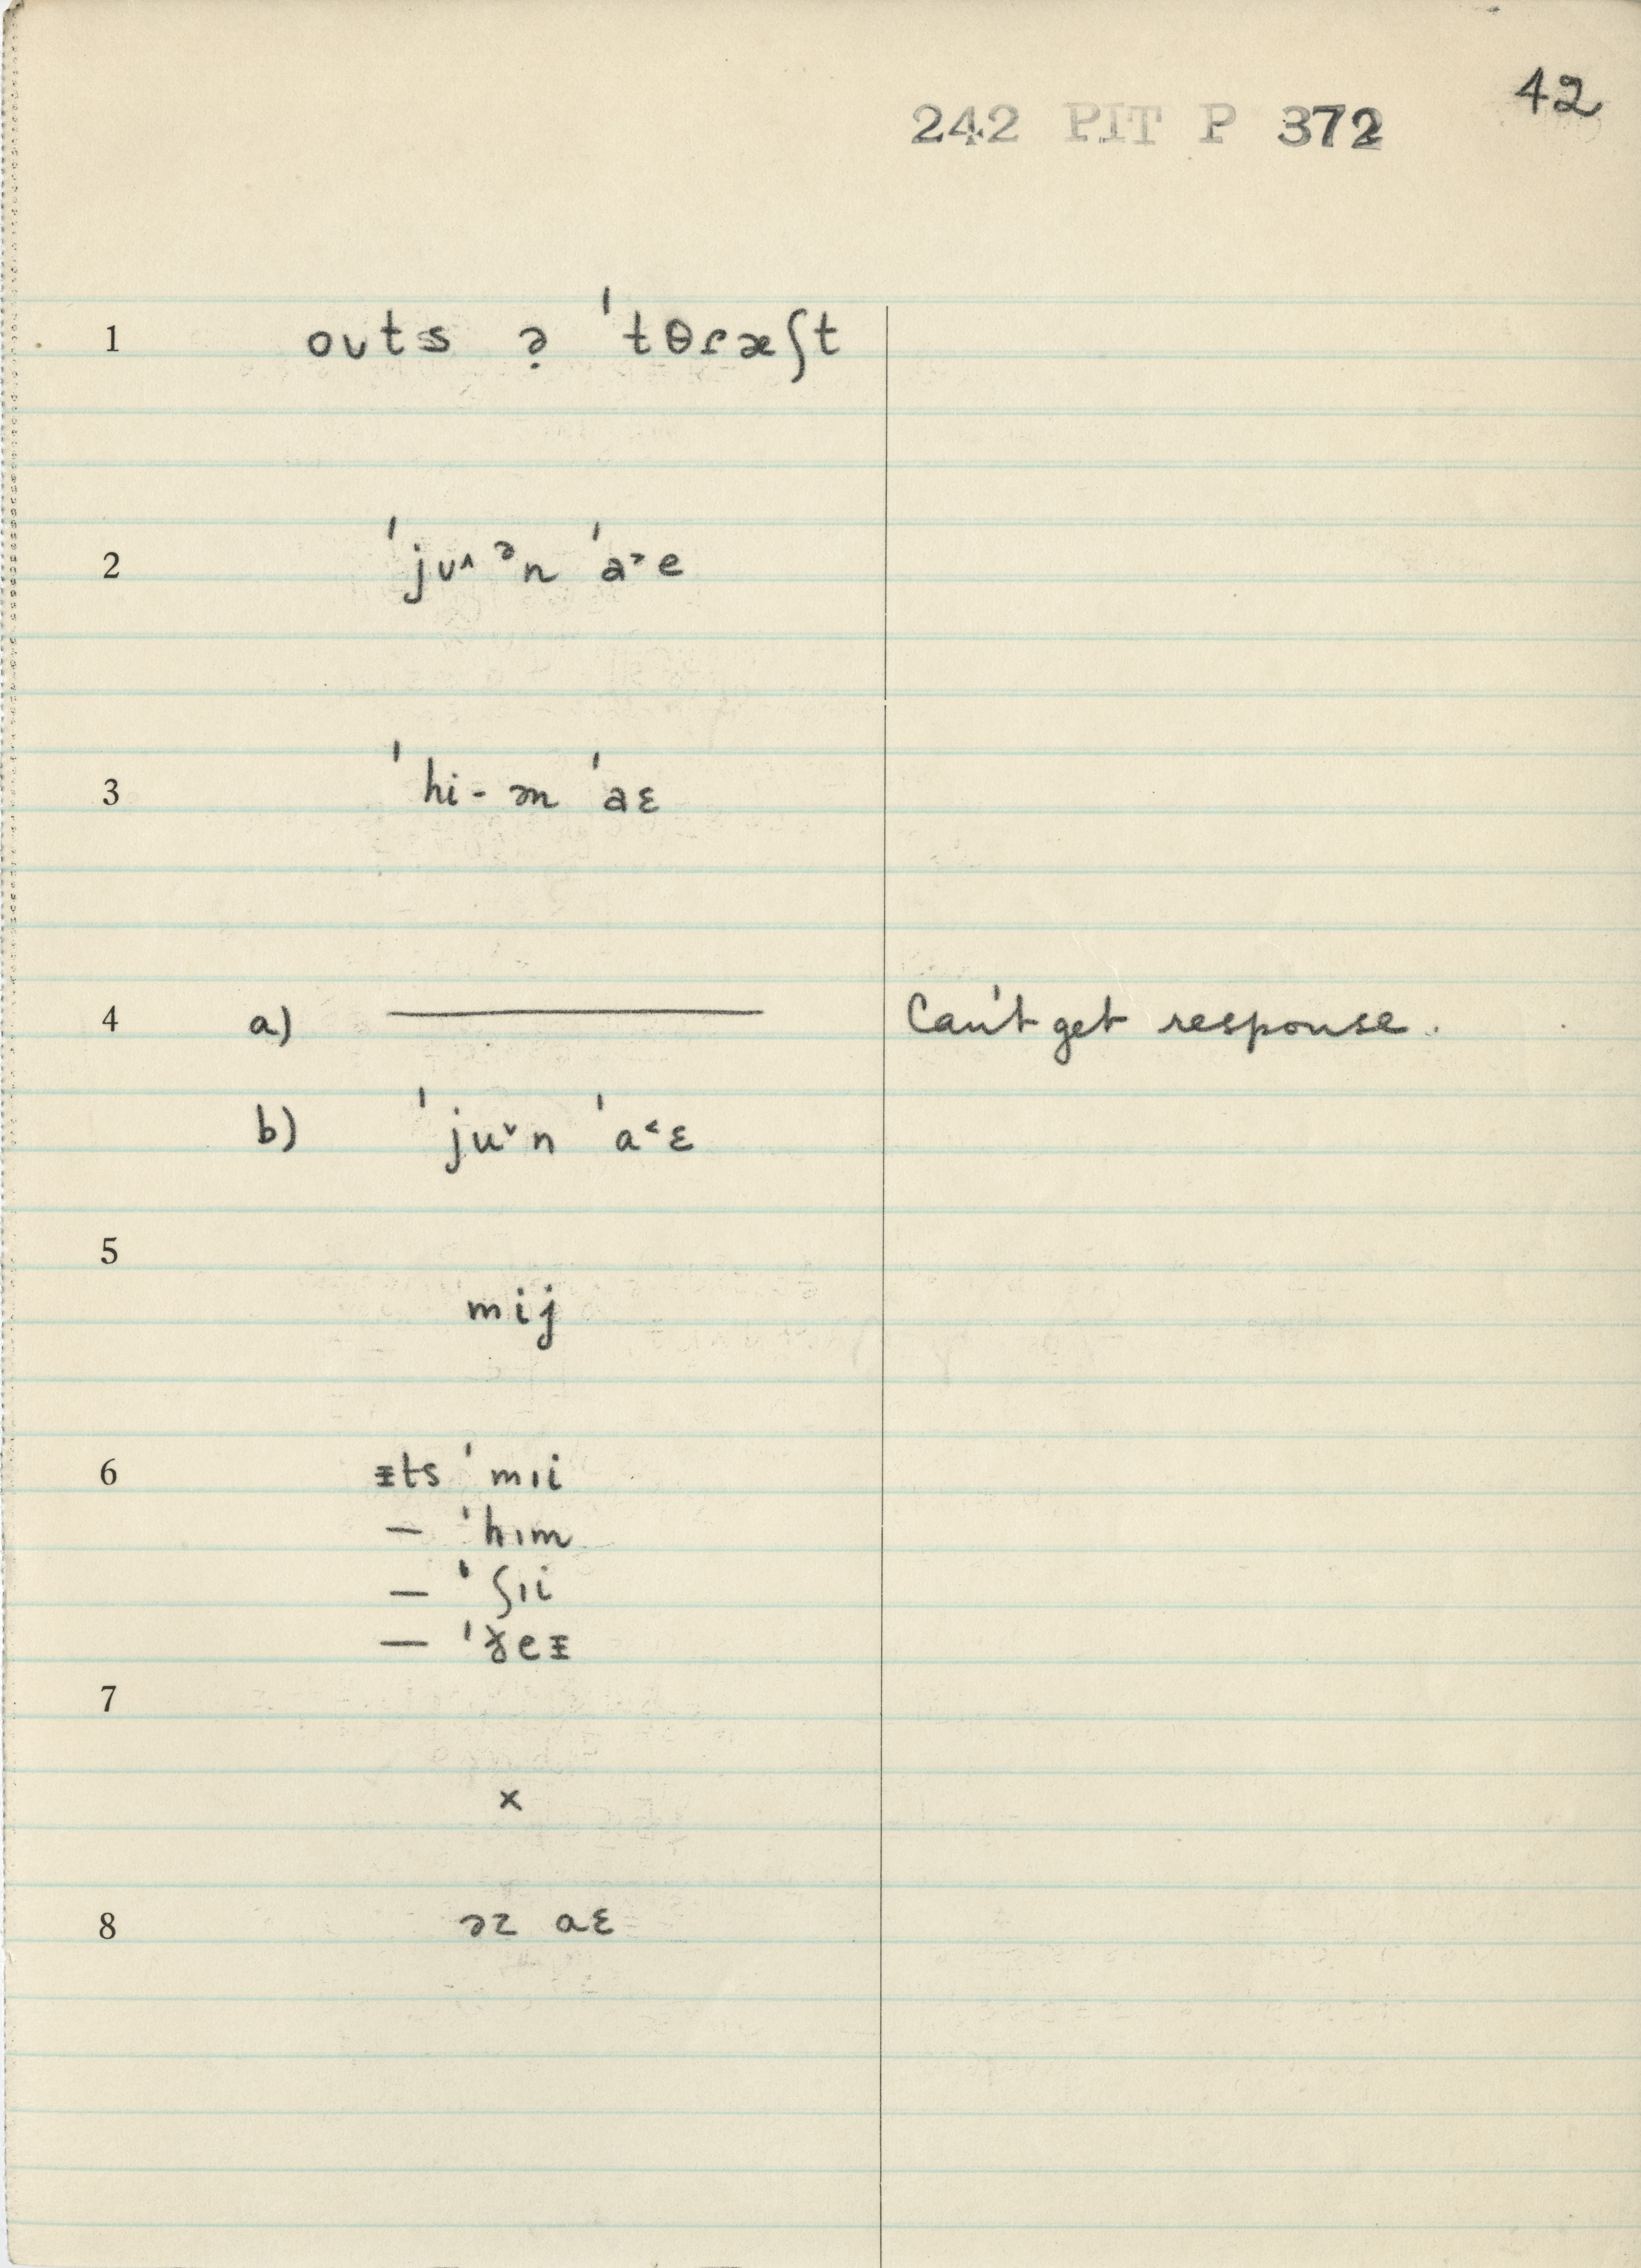 42
242 PIT P 372
1 oʊts ə̣ ˈtθɾæʃt
2 ˈjʊ˄ ᵊn ˈa˃e
3 ˈhi- ən ˈaɛ
4 a) ——— Can't get response.
b) ˈju˅n ˈa˂ɛ
5
mij
6 ᵻts ˈmɪi
— ˈhɪm
— ˈʃɪi
— ˈɣeᵻ
7
x
8 əz aɛ